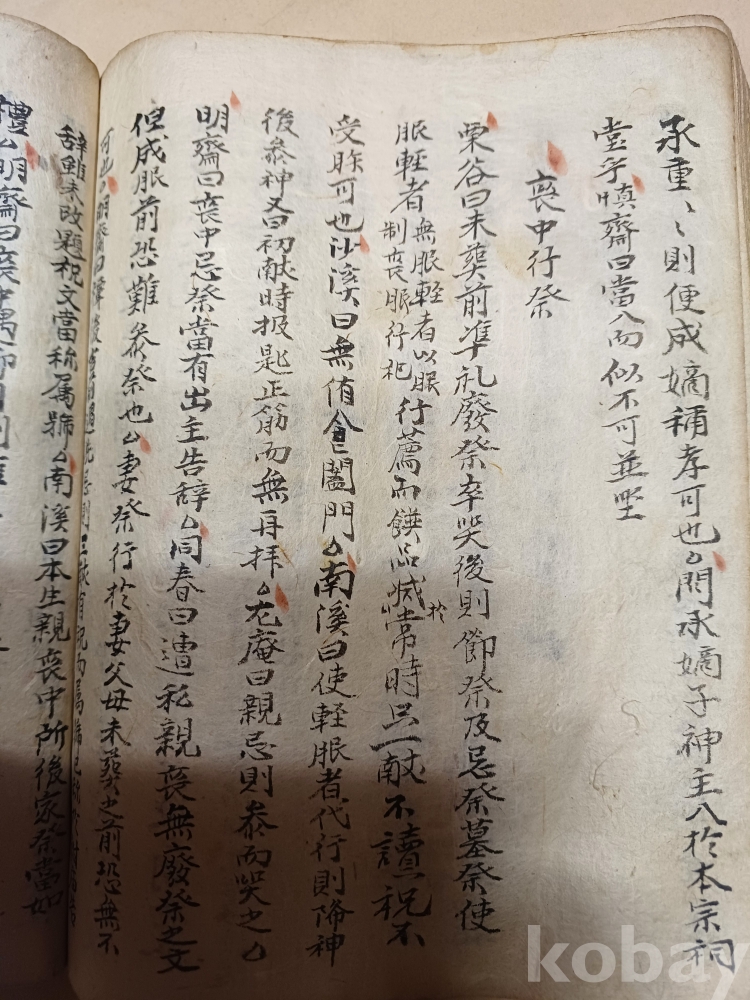 承重〻則便成嫡稱孝可也△問承嫡子神主入於本宗祠
堂乎愼齋曰當入而似不可並坐
喪中行祭
栗谷曰未葬前準礼廢祭卒哭後則節祭及忌祭墓祭使
服輕者無服輕者以服制喪服行祀行薦而饌品减於常時只一献不讀祝不
受胙可也沙溪曰無侑食闔門△南溪曰使軽服者代行則降神
後叅神又曰初献時扱匙正筯而無再拜△尤庵曰親忌則叅而哭之△
明齋曰喪中忌祭當有出主告辞△同春曰遭私親喪無廢祭之文
但成服前恐難叅祭也△妻祭行於妻父母未葬之前恐無不
可也△明齋曰
辞雖未改題祝文當称属號△南溪曰本生親喪中所後家祭當如
禮△明齋曰喪中遇節日則
kobay